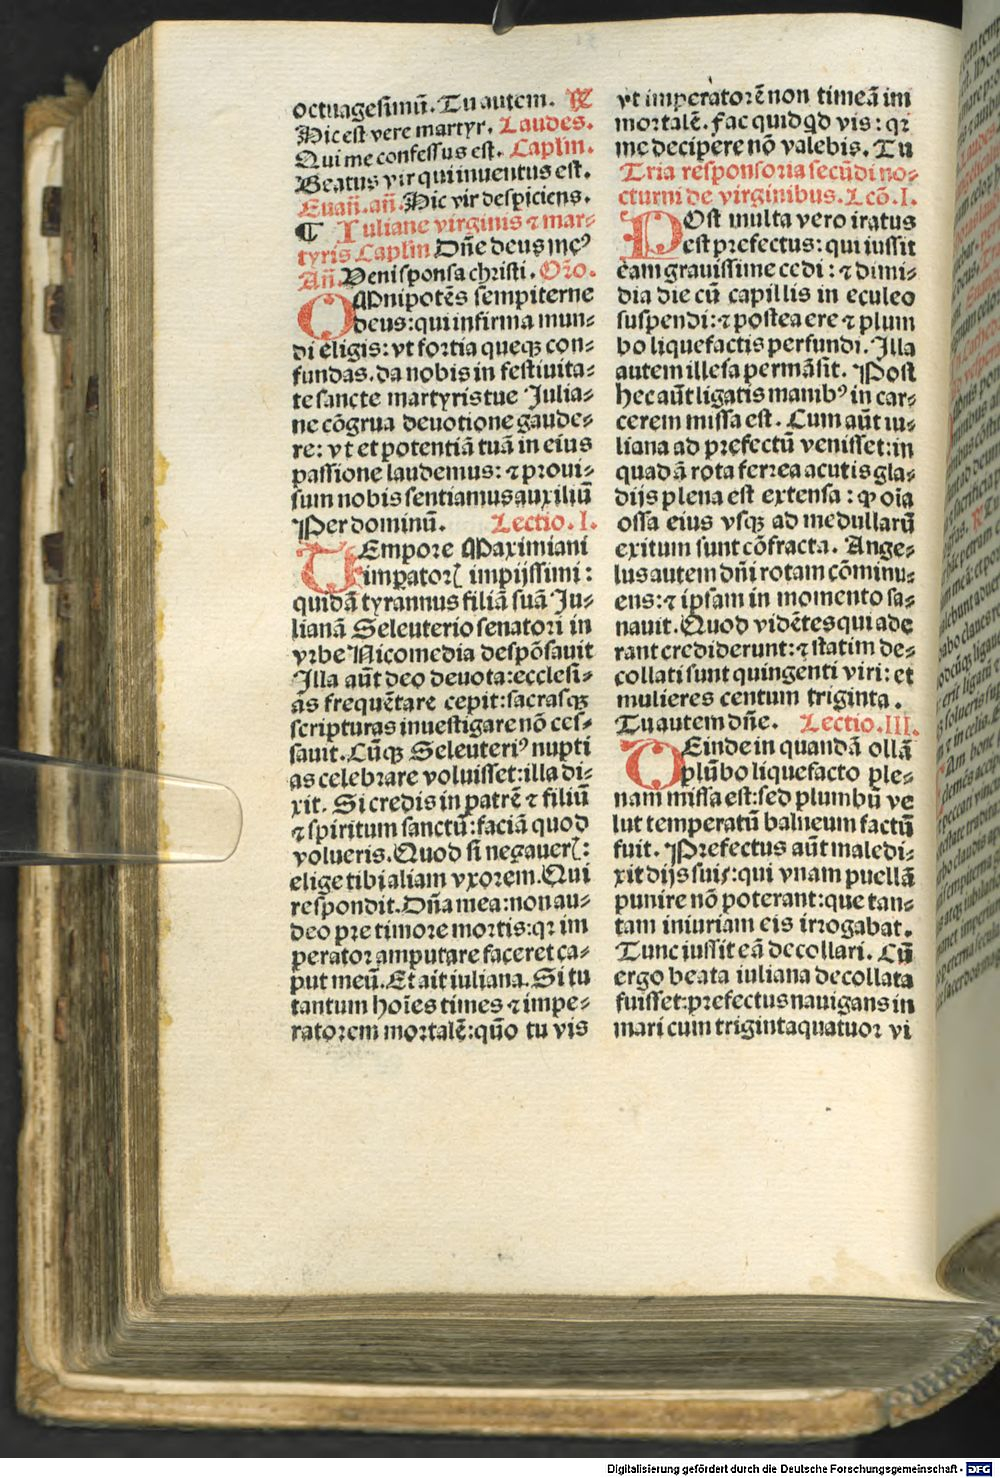 octuagesimū. Tu autem. ℟
Hic est vere martyr. Laudes.
Qui me confessus est. Caplm.
Beatus vir qui inuentus est.
Euañ. añ. Hic vir despiciens.
¶ Iuliane virginis ⁊ mar⸗
tyris Caplm Dñe deus meꝰ
Añ. Veni sponsa christi. Orō.
OMnipotēs sempiterne
deus: qui infirma mun⸗
di eligis: vt fortia queqꝫ con⸗
fundas. da nobis in festiuita⸗
te sancte martyris tue Julia⸗
ne cōgrua deuotione gaude⸗
re: vt et potentiā tuā in eius
passione laudemus: ⁊ proui⸗
sum nobis sentiamus auxiliū
Per dominū. Lectio. I.
TEmpore Maximiani
imꝑatorꝭ impijssimi:
quidā tyrannus filiā suā Ju⸗
lianā Seleuterio senatori in
vrbe Nicomedia despōsauit
Illa aūt deo deuota: ecclesi⸗
as frequētare cepit: sacrasqꝫ
scripturas inuestigare nō ces⸗
sauit. Cūqꝫ Seleuteriꝰ nupti
as celebrare voluisset: illa di⸗
xit. Si credis in patrē ⁊ filiū
⁊ spiritum sanctū: faciā quod
volueris. Quod si negauerꝭ:
elige tibi aliam vxorem. Qui
respondit. Dña mea: non au⸗
deo pre timore mortis: qꝛ im
perator amputare faceret ca⸗
put meū. Et ait iuliana. Si tu
tantum hoīes times ⁊ impe⸗
ratorem mortalē: quō tu vis
vt imperatorē non timeā im
mortalē. fac quid qd vis: qꝛ
me decipere nō valebis. Tu
Tria responsoria secūdi no⸗
cturni de virginibus. Lcō. I.
POst multa vero iratus
est prefectus: qui iussit
eam grauissime cedi: ⁊ dimi⸗
dia die cū capillis in eculeo
suspendi: ⁊ postea ere ⁊ plum
bo liquefactis perfundi. Illa
autem illesa permāsit. Post
hec aūt ligatis manibꝰ in car⸗
cerem missa est. Cum aūt iu⸗
liana ad prefectū venisset: in
quadā rota ferrea acutis gla⸗
dijs plena est extensa: ꝙ oīa
ossa eius vsqꝫ ad medullarū
exitum sunt cōfracta. Ange⸗
lus autem dñi rotam cōminu⸗
ens: ⁊ ipsam in momento sa⸗
nauit. Quod vidētes qui ade
rant crediderunt: ⁊ statim de⸗
collati sunt quingenti viri: et
mulieres centum triginta.
Tu autem dñe. Lectio. III.
DEinde in quandā ollā
plūbo liquefacto ple⸗
nam missa est: sed plumbū ve
lut temperatū balneum factū
fuit. Prefectus aūt maledi⸗
xit dijs suis: qui vnam puellā
punire nō poterant: que tan⸗
tam iniuriam eis irrogabat.
Tunc iussit eā decollari. Cū
ergo beata iuliana decollata
fuisset: prefectus nauigans in
mari cum triginta quatuor vi
Digitalisierung gefördert durch die Deutsche Forschungsgemeinschaft - DFG